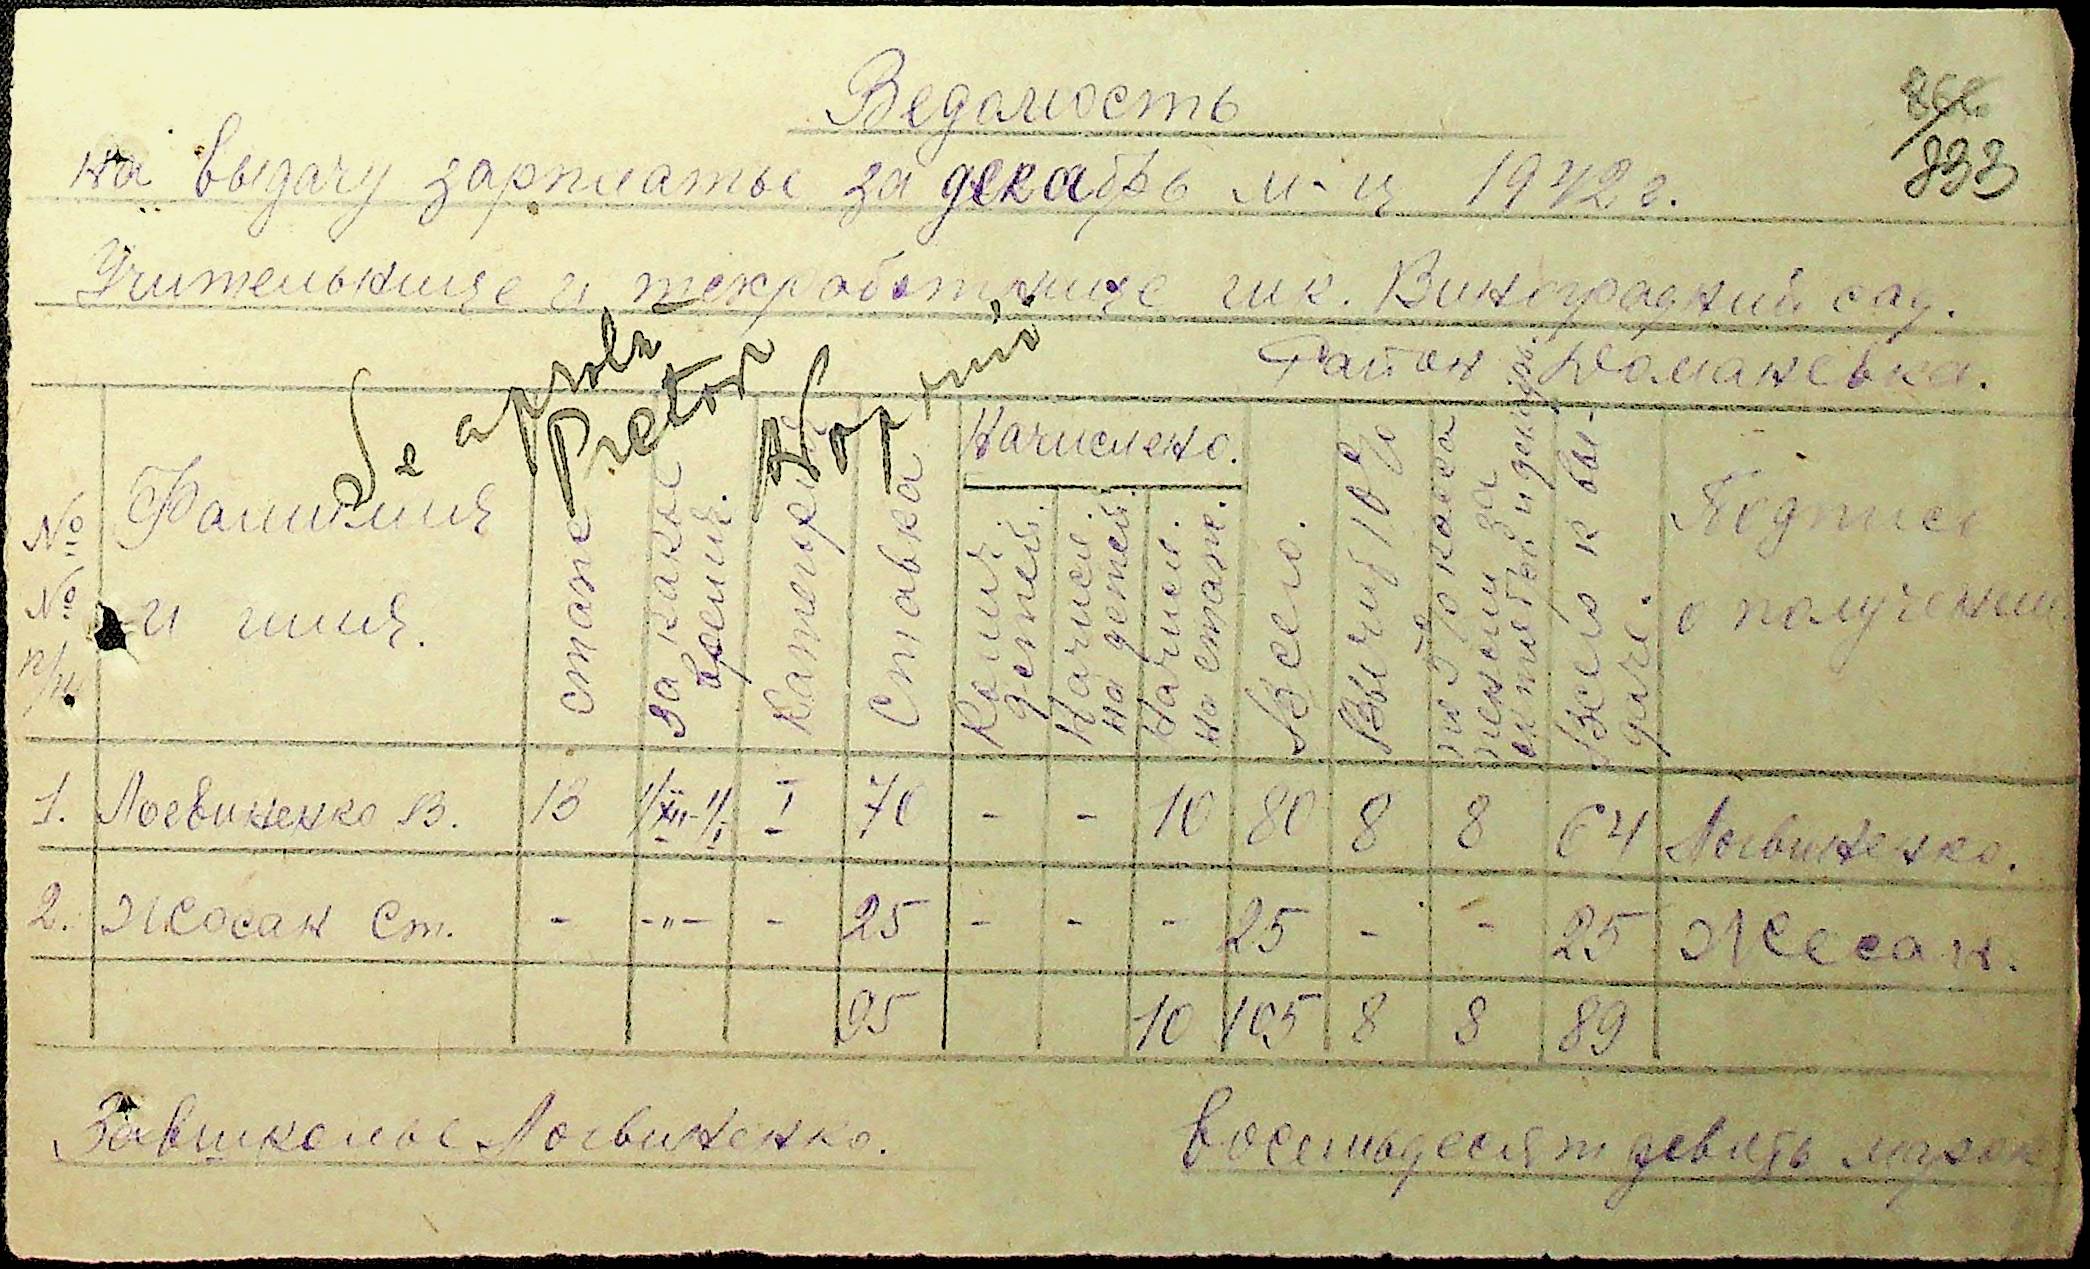 Ведомость
на выдачу зарплаты за декабрь м-ц 1942 г.
833
Учительнице и техработнице шк. Виноградный сад.
Район Доманевка.
Se aprobă
Pretor
№ № п/п
Фамилия и имия.
стаж
за какое время.
Категория
Ставка
Начислено.
Колич детей.
Начисл на детей.
Начисл. на стаж.
Всего.
Вычит 10%
пенсии за октябрь и декабрь
Всего к выдаче.
Подпись о получении.
1. Логвиненко В. 13 1/XII-1/I I 70 - - 10 80 8 8 64 Логвиненко.
2. Жосан Ст. - -"- - 25 - - - 25 - - 25 Жосан.
95 10 105 8 8 89
Завшколы Логвиненко.
Восемьдесят девять марок